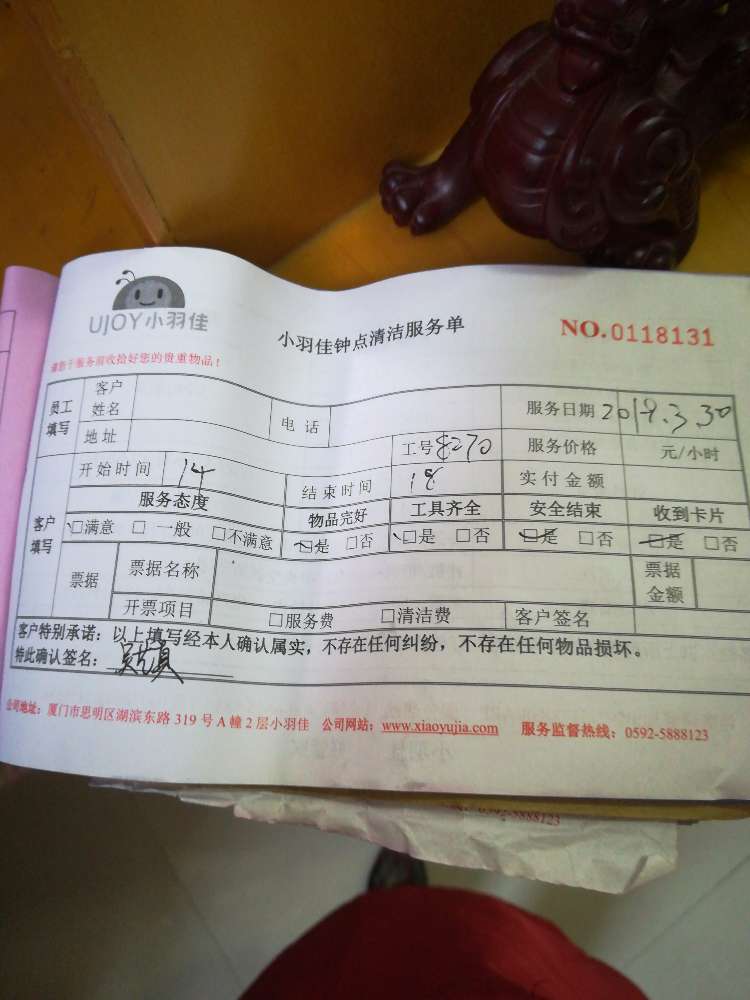 UJOY小羽佳
小羽佳钟点清洁服务单
NO.0118131
请您于服务前收拾好您的贵重物品！
员工填写 客户姓名 电话 服务日期 2019.3.30
地址 工号 8270 服务价格 元/小时
客户填写 开始时间 14 结束时间 18 实付金额
服务态度 物品完好 工具齐全 安全结束 收到卡片
□满意 □一般 □不满意 □是 □否 □是 □否 □是 □否 □是 □否
票据 票据名称 票据金额
开票项目 □服务费 □清洁费 客户签名
客户特别承诺：以上填写经本人确认属实，不存在任何纠纷，不存在任何物品损坏。
特此确认签名：
公司地址：厦门市思明区湖滨东路 319 号 A 幢 2 层小羽佳 公司网站：www.xiaoyujia.com 服务监督热线：0592-5888123
0592-5888123